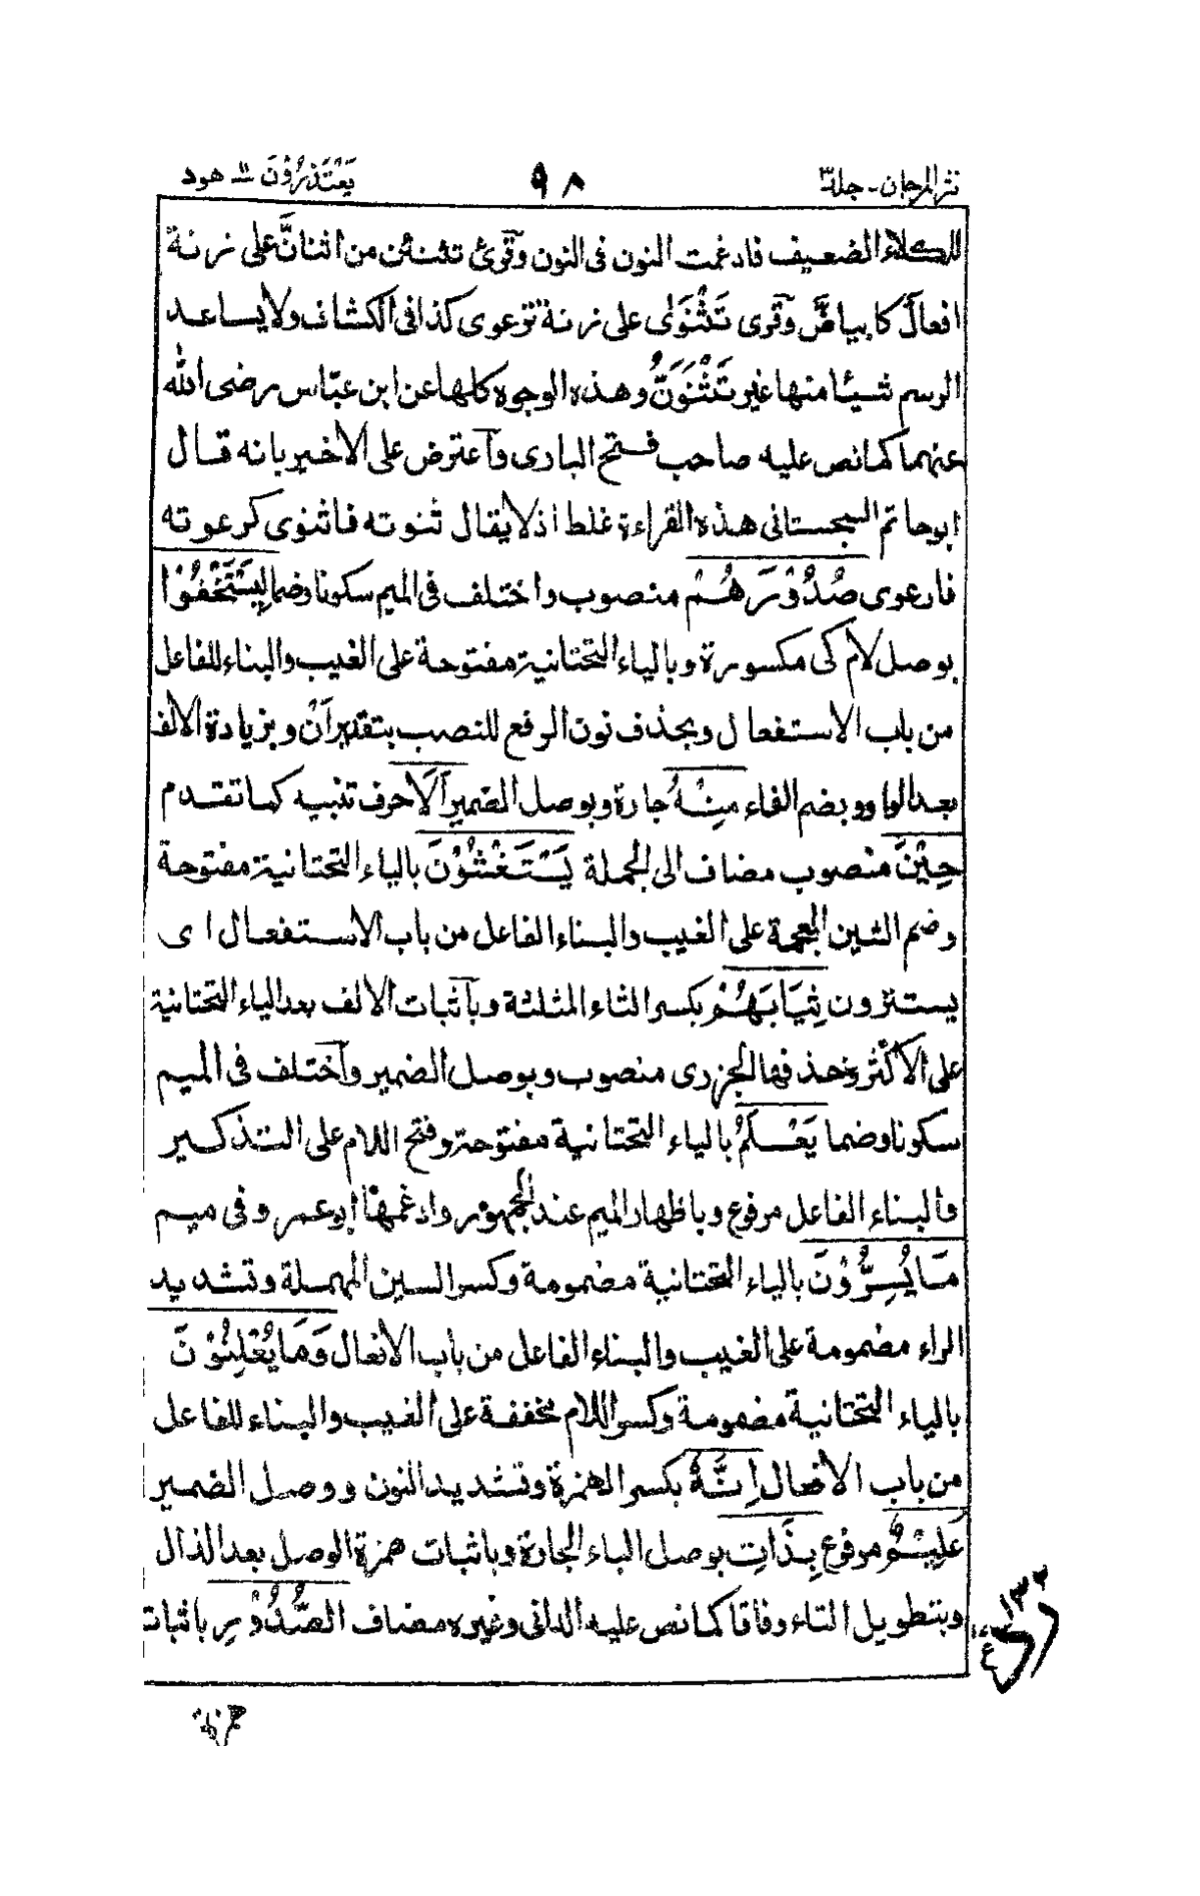 نثر المرجان - جلد ٣ ٩٨ يَعْتَذِرُوْنَ ١١ هود
للكلاء الضعيف فادغمت النون فى النون وقرئ تثنئن من اثنانَّ على زنة
افعالَّ كابياضَّ وقرى تَثْنَوٰى على زنة ترعوى كذا فى الكشاف ولا يساعد
الرسم شيئا منها غير تَثْنَوَنَّ وهذه الوجوه كلها عن ابن عبّاس رضى الله
عنهما كما نص عليه صاحب فتح البارى وآعترض على الاخير بانه قال
ابوحاتم السجستانى هذه القراءة غلط اذ لا يقال ثنوته فاثنوى كرعوته
فارعوى صُدُوْرَهُمْ منصوب واختلف فى الميم سكونا وضما لِيَسْتَخْفُوْا
بوصل لام كى مكسورة وبالياء التحتانية مفتوحة على الغيب والبناء للفاعل
من باب الاستفعال وبحذف نون الرفع للنصب بتقدير اَنْ وبزيادة الالف
بعد الواو وبضم الفاء مِنْهُ جارة وبوصل الضمير اَلَا حرف تنبيه كما تقدم
حِيْنَ منصوب مضاف الى الجملة يَسْتَغْشُوْنَ بالياء التحتانية مفتوحة
وضم الشين المعجمة على الغيب والبناء للفاعل من باب الاستفعال اى
يستترون ثِيَابَهُمْ بكسر الثاء المثلثة وبآثبات الالف بعد الياء التحتانية
على الاكثر وحذفها الجزرى منصوب وبوصل الضمير وآختلف فى الميم
سكونا وضما يَعْلَمُ بالياء التحتانية مفتوحة وفتح اللام على التذكير
والبناء للفاعل مرفوع وباظهار الميم عند الجمهور وادغمها ابو عمرو فى ميم
مَا يُسِرُّوْنَ بالياء التحتانية مضمومة وكسر السين المهملة وتشديد
الراء مضمومة على الغيب والبناء للفاعل من باب الافعال وَمَا يُعْلِنُوْنَ
بالياء التحتانية مضمومة وكسر اللام مخففة على الغيب والبناء للفاعل
من باب الافعال اِنَّهٗ بكسر الهمزة وتشديد النون ووصل الضمير
عَلِيْمٌ مرفوع بِذَاتِ بوصل الباء الجارة وباثبات همزة الوصل بعد الذال
وبتطويل التاء وفاقا كما نص عليه الدانى وغيره مضاف الصُّدُوْرِ باثبات
همزة